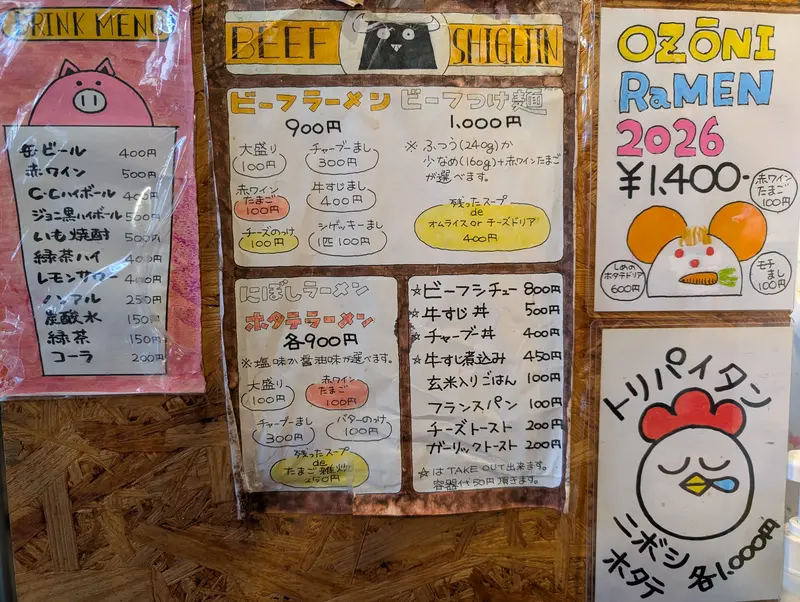 DRINK MENU
缶ビール 400円
赤ワイン 500円
C.Cハイボール 400円
ジョニ黒ハイボール 500円
いも焼酎 500円
緑茶ハイ 400円
レモンサワー 400円
ノンアル 250円
炭酸水 150円
緑茶 150円
コーラ 200円
BEEF SHIGEJIN
ビーフラーメン
900円
大盛り
100円
チャーブーまし
300円
赤ワイン
たまご
100円
牛すじまし
400円
チーズのっけ
100円
シゲッキーまし
1匹 100円
ビーフつけ麺
1.000円
※ ふつう(240g)か
少なめ(160g)+赤ワインたまご
が選べます。
残ったスープ
de
オムライス or チーズドリア
400円
にぼしラーメン
ホタテラーメン
各900円
※塩味か醤油味が選べます。
大盛り
100円
赤ワイン
たまご
100円
チャーブーまし
300円
バターのっけ
100円
残ったスープ
de
たまご雑炊
250円
☆ビーフシチュー 800円
☆牛すじ丼 500円
☆チャーブー丼 400円
☆牛すじ煮込み 450円
玄米入りごはん 100円
フランスパン 100円
チーズトースト 200円
ガーリックトースト 200円
☆は TAKE OUT出来ます。
容器代50円頂きます。
OZŌNI
RaMEN
2026
¥1.400-
赤ワイン
たまご
100円
しめの
ホタテドリア
600円
モチ
まし
100円
トリパイタン
ニボシ
ホタテ
各1.000円